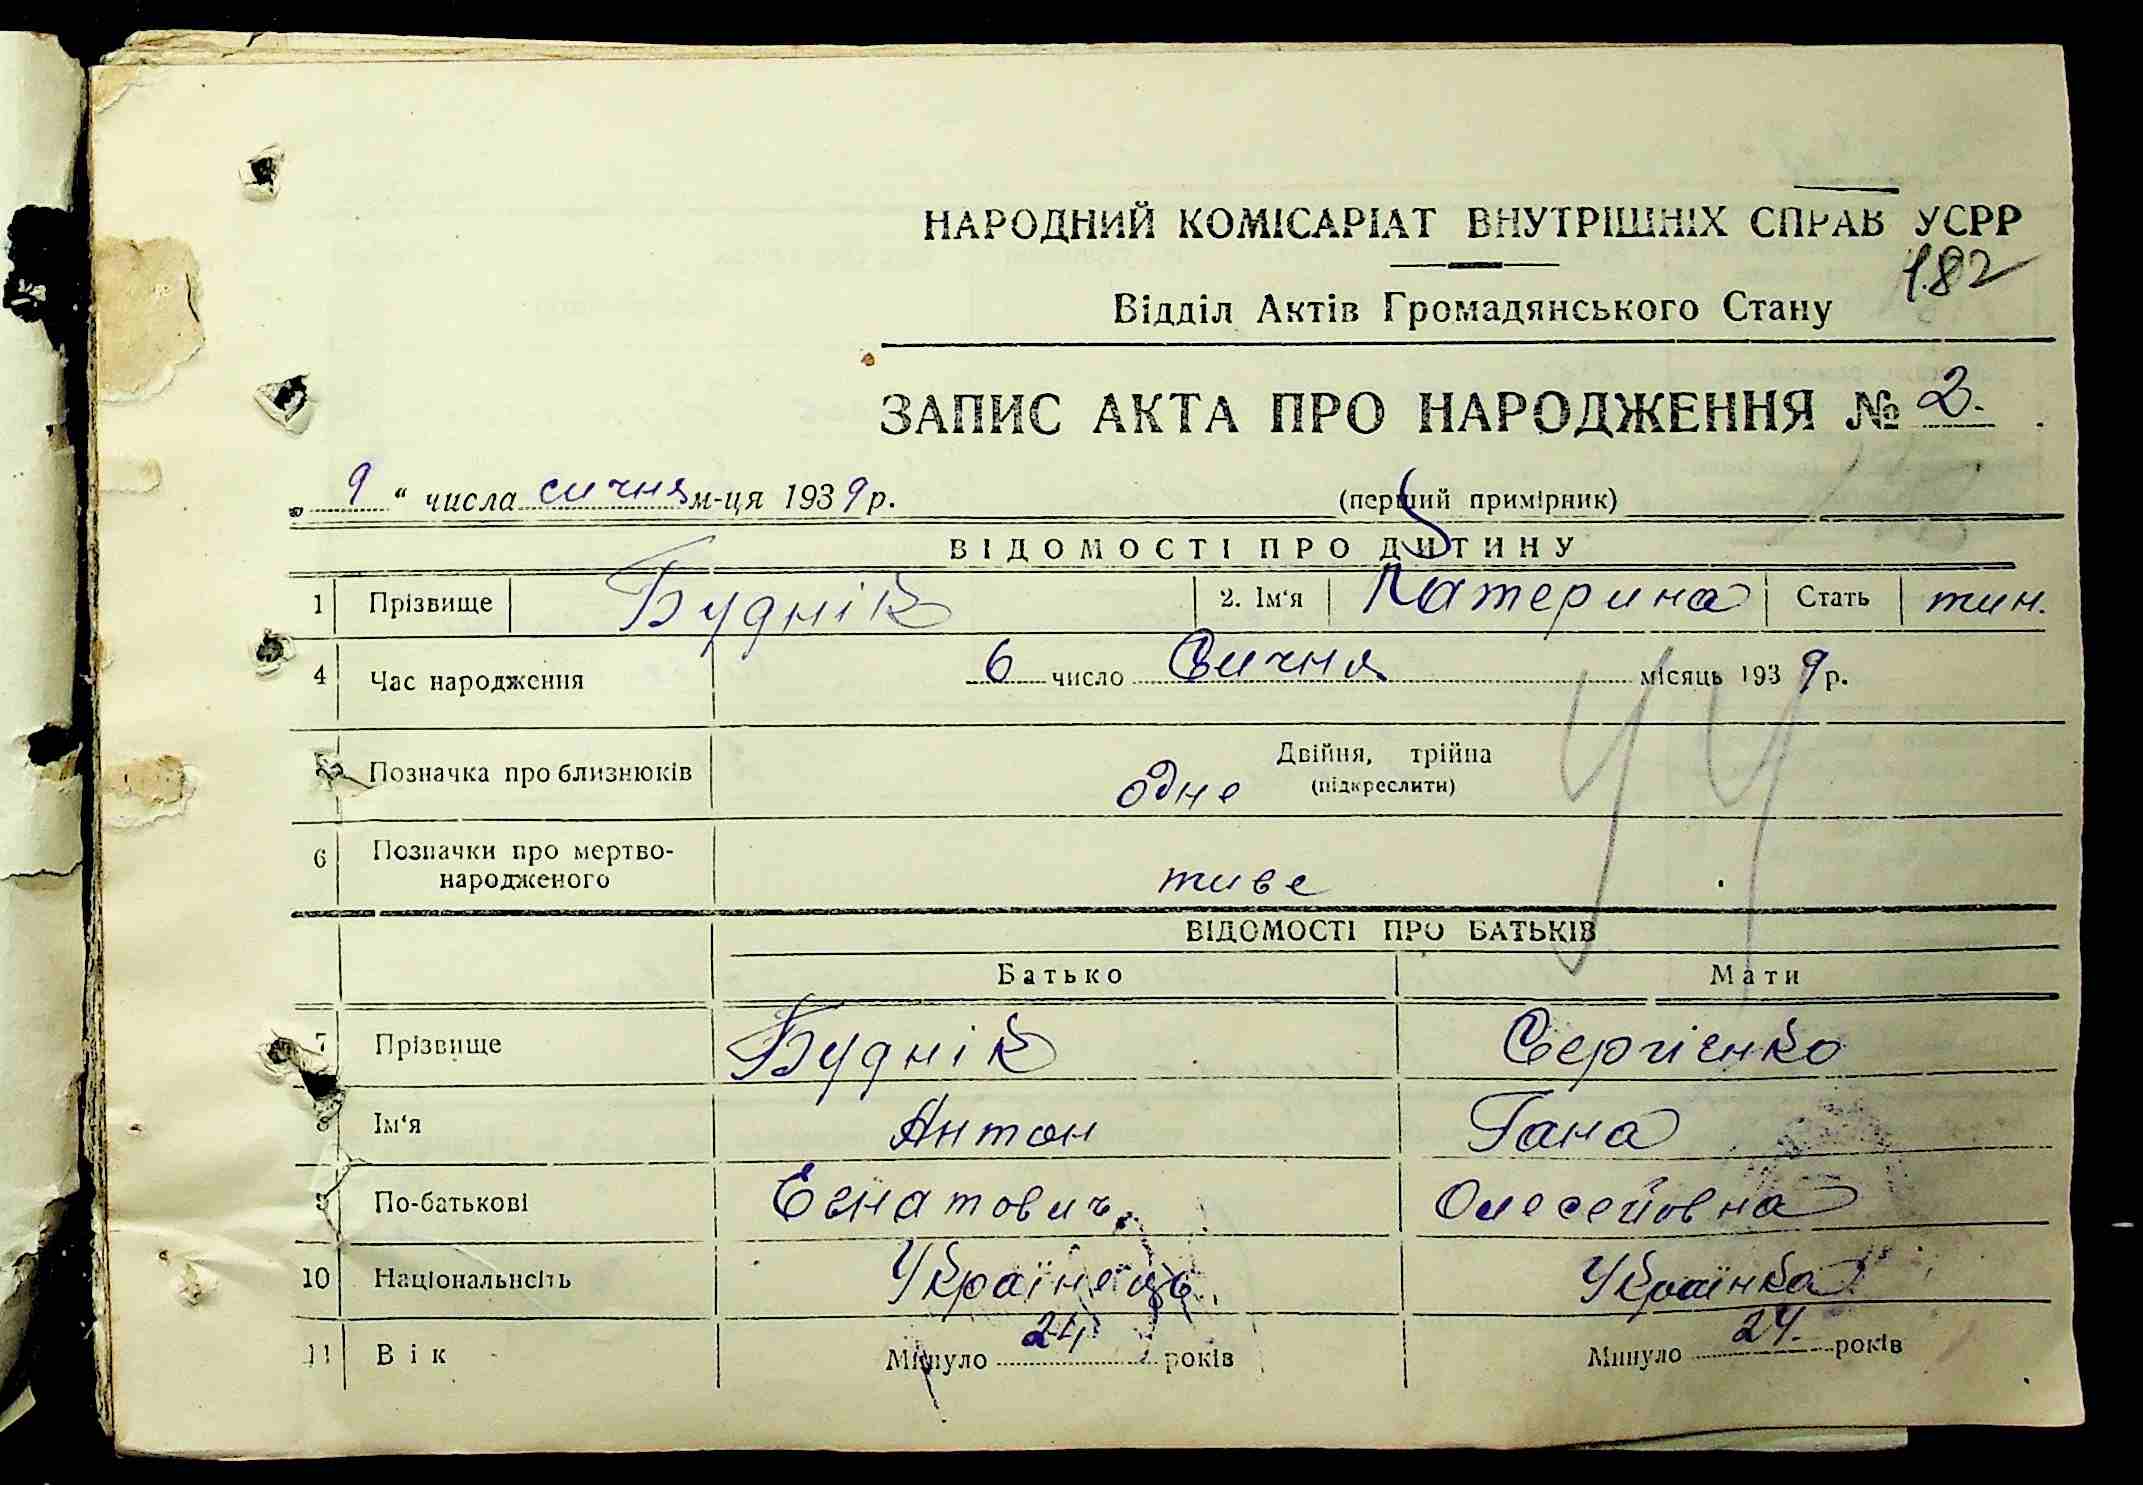 НАРОДНИЙ КОМІСАРІАТ ВНУТРІШНІХ СПРАВ УСРР
182
Відділ Актів Громадянського Стану
ЗАПИС АКТА ПРО НАРОДЖЕННЯ № 2.
„ 9 “ числа сичня м-ця 1939 р. (перший примірник)
ВІДОМОСТІ ПРО ДИТИНУ
1 Прізвище Буднік 2. Ім'я Катерина Стать жин.
4 Час народження 6 число Сичня місяць 1939 р.
Позначка про близнюків одне Двійня, трійна
(підкреслити)
6 Позначки про мертво-
народженого живе
ВІДОМОСТІ ПРО БАТЬКІВ
Батько Мати
7 Прізвище Буднік Сергієнко
8 Ім'я Антон Гана
9 По-батькові Егнатович Олесейовна
10 Національність Українець Українка
11 Вік Минуло 24 років Минуло 24. років